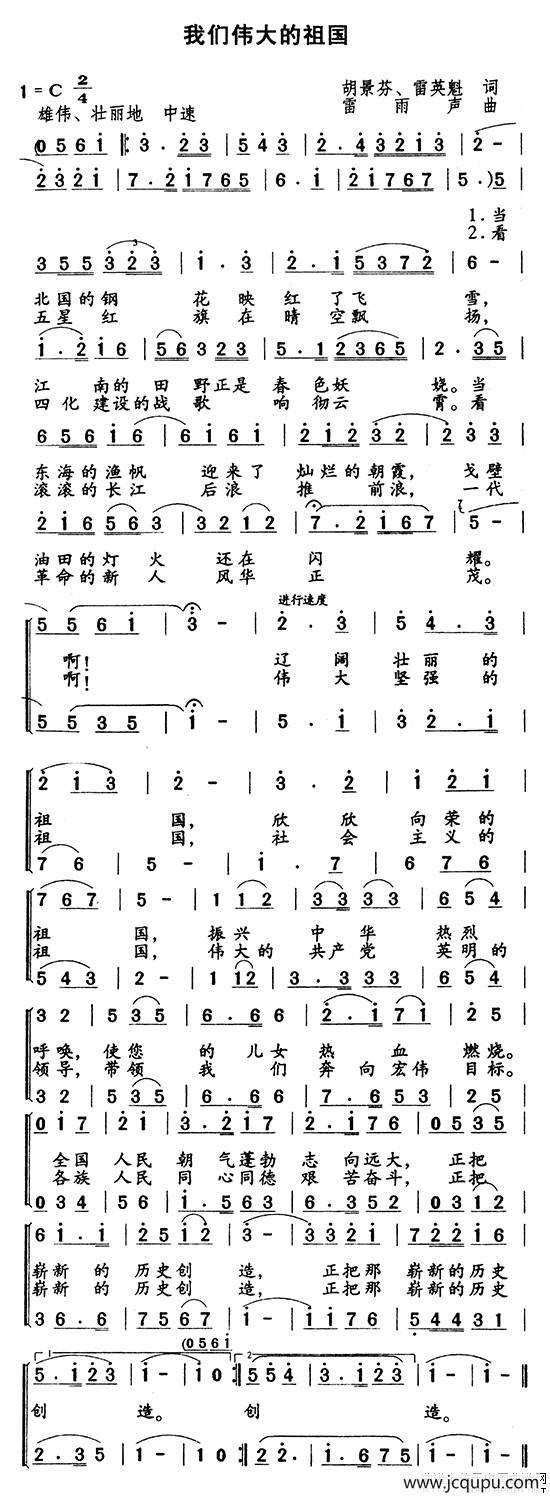 我们伟大的祖国
1=C 2/4
胡景芬、雷英魁 词
雄伟、壮丽地 中速
雷雨声 曲
(0 5 6 1 |: 3 . 2 3 | 5 4 3 | 2 . 4 3 2 1 3 | 2 - |
2 3 2 1 | 7 . 2 1 7 6 5 | 6 . 1 | 2 1 7 6 7 | 5 . ) 5 |
1.当
2.看
3 5 5 3 2 3 | 1 . 3 | 2 . 1 5 3 7 2 | 6 - |
3
北国的钢 花映红了飞 雪,
五星红 旗在晴空飘 扬,
1 . 2 1 6 | 5 6 3 2 3 | 5 . 1 2 3 6 5 | 2 . 3 5 |
江南的田 野正是春色妖 娆。当
四化建设的战 歌响彻云 霄。看
6 5 6 1 6 | 6 1 6 1 | 2 1 2 3 2 | 2 . 3 |
东海的渔帆 迎来了 灿烂的朝霞, 戈壁
滚滚的长江 后浪 推前浪, 一代
2 1 6 5 6 3 | 3 2 1 2 | 7 . 2 1 6 7 | 5 - |
油田的灯火 还在 闪 耀。
革命的新人 风华 正 茂。
进行速度
5 5 6 1 | 3 - | 2 . 3 | 5 4 . 3 |
啊! 辽阔 壮丽的
啊! 伟大 坚强的
5 5 3 5 | 1 - | 5 . 1 | 3 2 . 1 |
2 1 3 | 2 - | 3 . 2 | 1 2 1 |
祖 国, 欣欣 向荣的
祖 国, 社会 主义的
7 6 | 5 - | 1 . 7 | 6 7 6 |
7 6 7 | 5 - | 1 1 2 | 3 3 3 3 | 6 5 4 |
祖 国, 振兴 中华 热烈
祖 国, 伟大的 共产党 英明的
5 4 3 | 2 - | 1 1 2 | 3 . 3 3 3 | 6 5 4 |
3 2 | 5 3 5 | 6 . 6 6 | 2 . 1 7 1 | 2 5 |
呼唤, 使您 的儿女 热血 燃烧。
领导, 带领 我们 奔向宏伟 目标。
3 2 | 5 3 5 | 6 . 6 6 | 7 . 6 5 3 | 2 5 |
0 1 7 | 2 1 | 3 . 2 1 7 | 2 . 1 7 6 | 0 5 3 5 |
全国 人民 朝气蓬勃 志向远大, 正把
各族 人民 同心同德 艰苦奋斗, 正把
0 3 4 | 5 6 | 1 . 5 6 3 | 6 . 3 5 2 | 0 3 1 2 |
6 1 . 1 | 2 5 1 2 | 3 - | 3 3 1 2 | 7 2 2 1 6 |
崭新的 历史创 造, 正把那 崭新的历史
崭新的 历史创 造, 正把那 崭新的历史
3 6 . 6 | 7 5 6 7 | 1 - | 1 1 7 6 | 5 4 4 3 1 |
(0 5 6 1
1
2
5 . 1 2 3 | 1 - | 1 0 :| 5 5 4 | 3 . 1 2 3 | 1 - | 1 - ‖
创 造。 创 造。
2 . 3 5 | 1 - | 1 0 :| 2 2 | 1 . 6 7 5 | 1 - | 1 - ‖
www.jcqupu.com